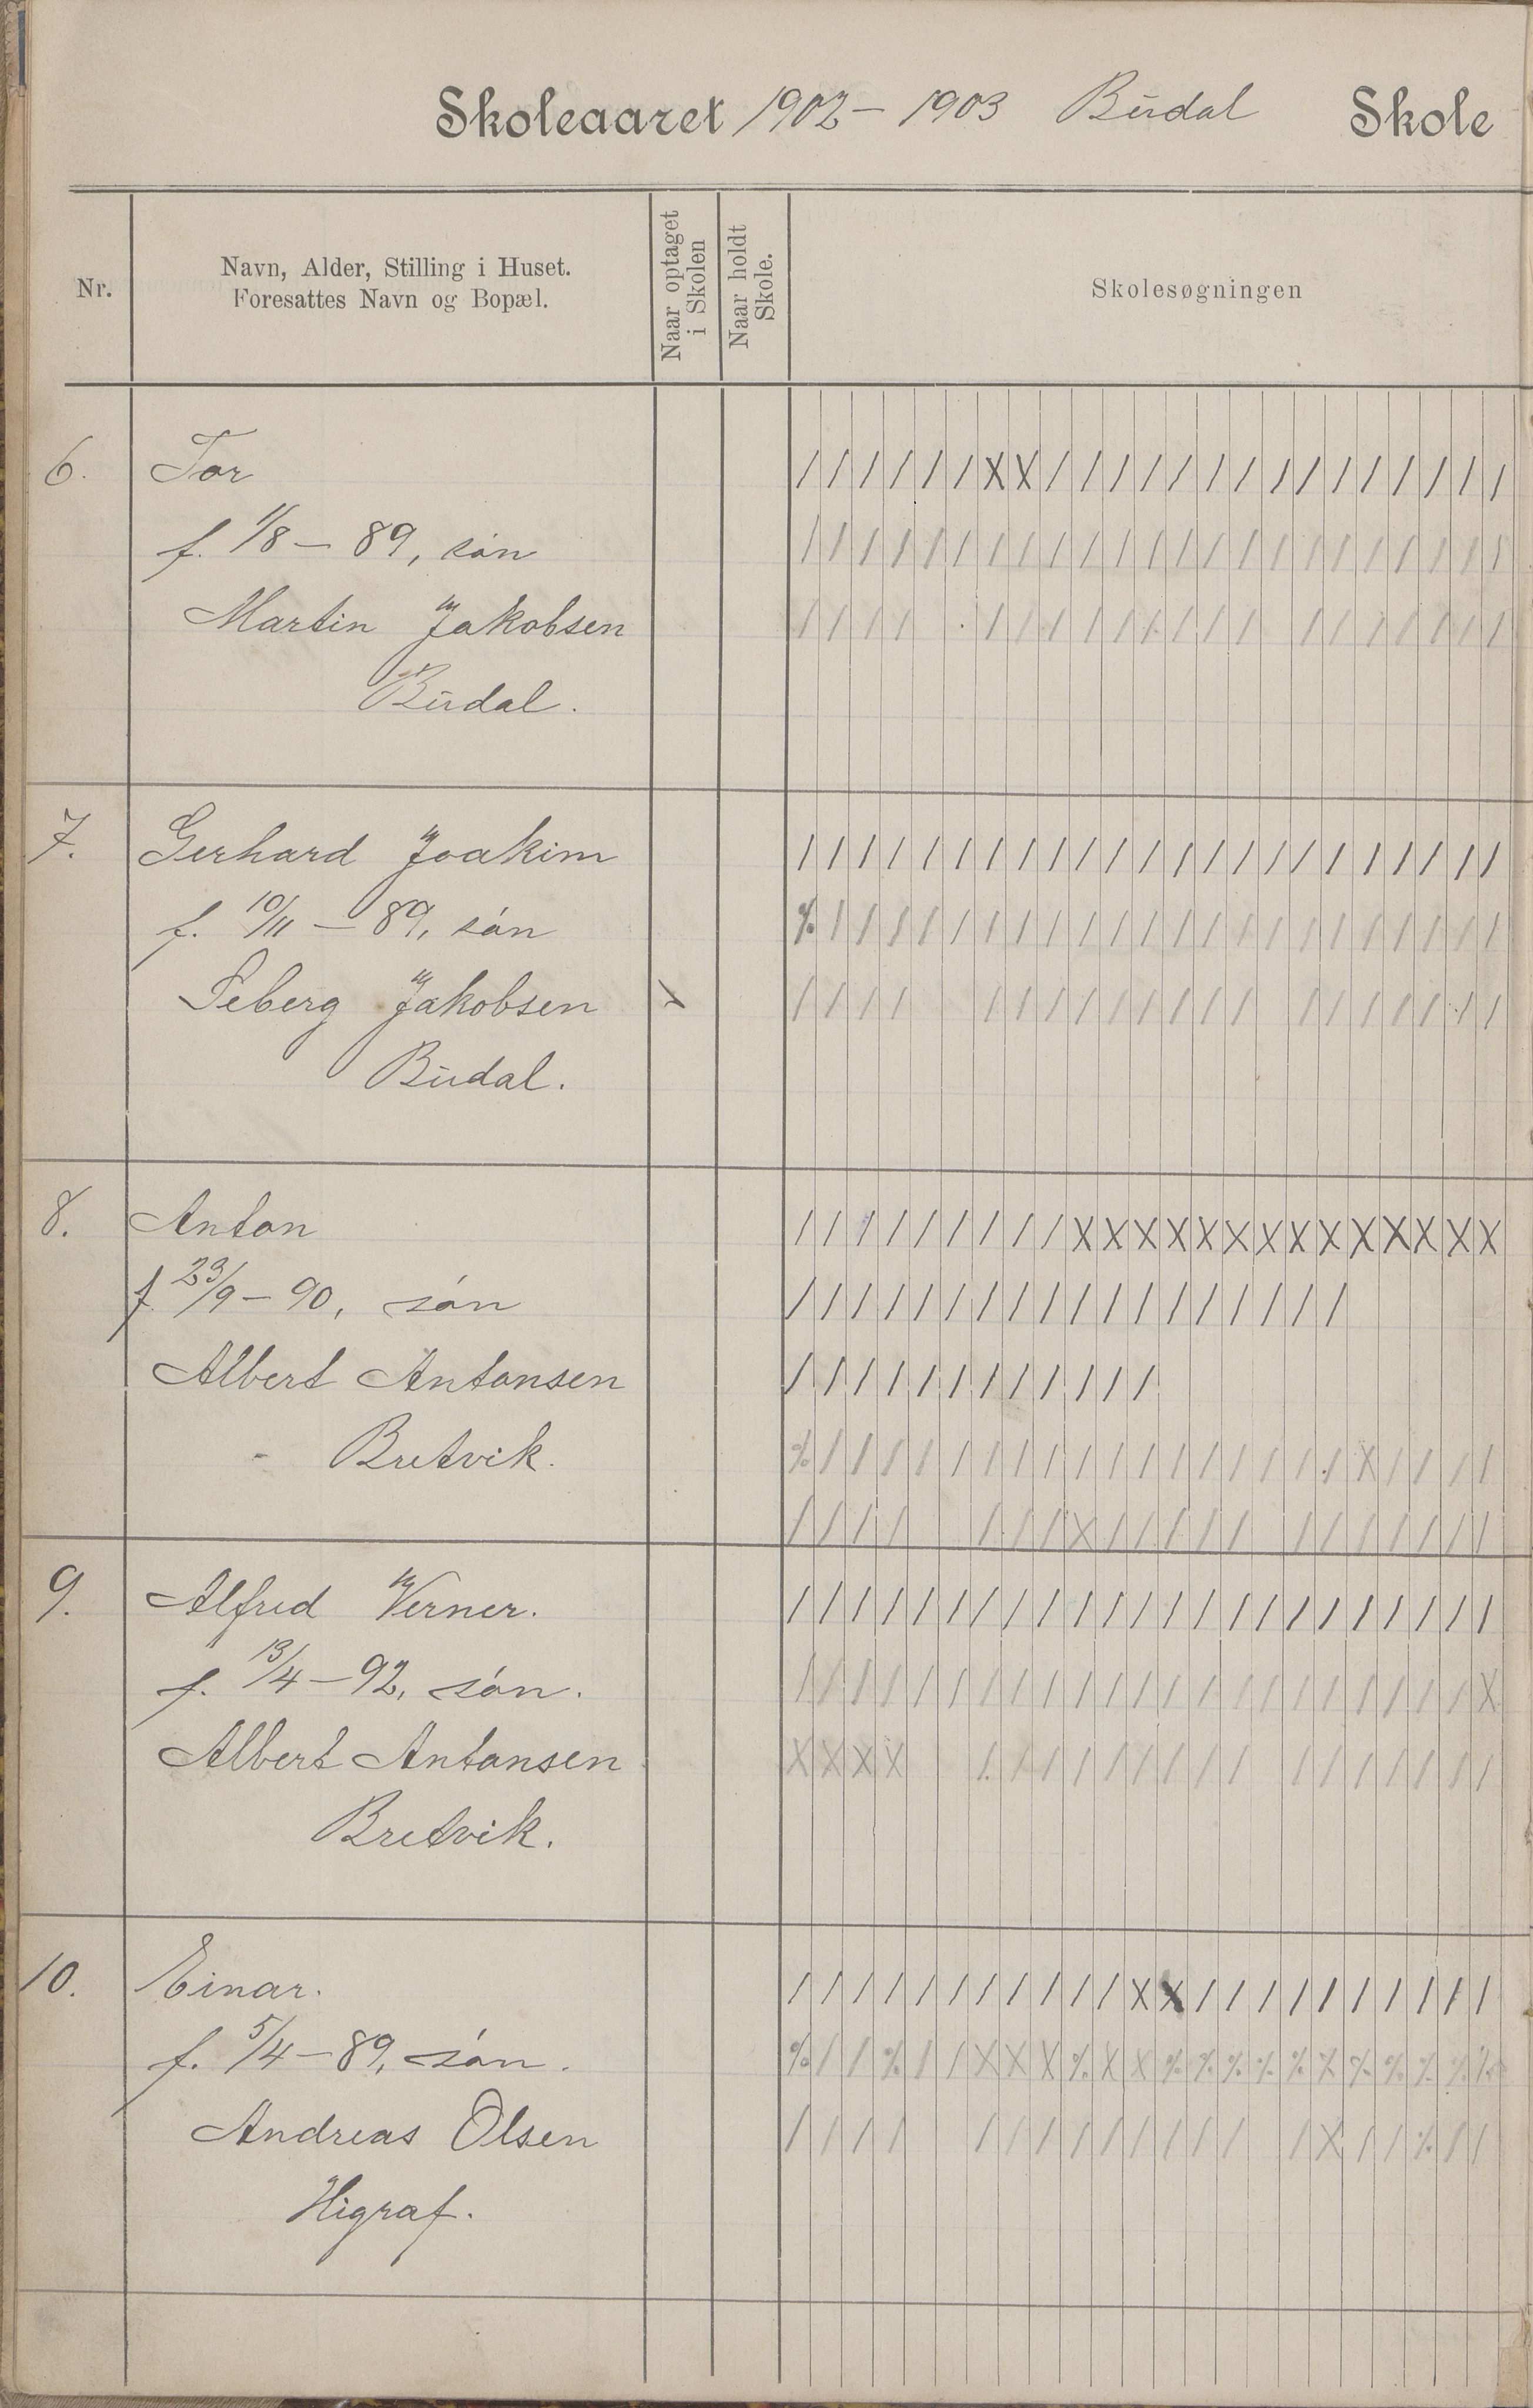 Skoleaaret 1902 – 1903 Búdal Skole
Nr.
Navn, Alder, Stilling i Huset.
Foresattes Navn og Bopæl.
Naar optaget
i Skolen
Naar holdt
Skole.
Skolesøgningen
6. Tor
f. 1/8 – 89, són
Martin Jakobsen
Búdal.
7. Gerhard Joakim
f. 10/11 – 89, són
Seberg Jakobsen
Búdal.
8. Anton
f. 23/9 – 90, són
Albert Antonsen
Bretvik.
9. Alfred Verner.
f. 13/4 – 92, són.
Albert Antonsen
Bretvik.
10. Einar.
f. 5/4 – 89, són.
Andreas Olsen
Higraf.